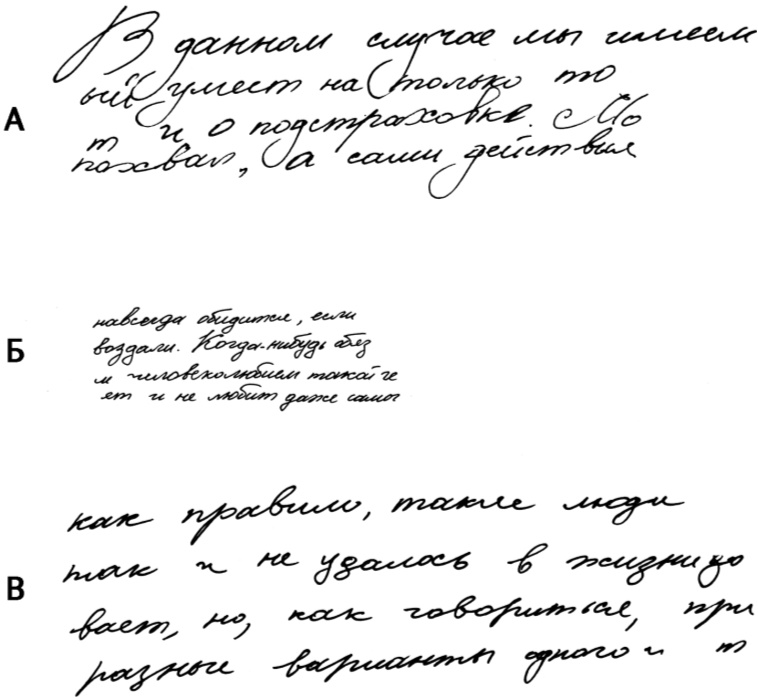 А
В данном случае мы имеем
ый уместна только то
т и о подстраховке. Мо
похвал, а сами действия
Б
навсегда обидится, если
воздали. Когда-нибудь обяз
м человеколюбием такой че
ет и не любит даже самы
В
как правило, такие люди
так и не удалось в жизни до
вает, но, как говориться, при
разные варианты одного и т